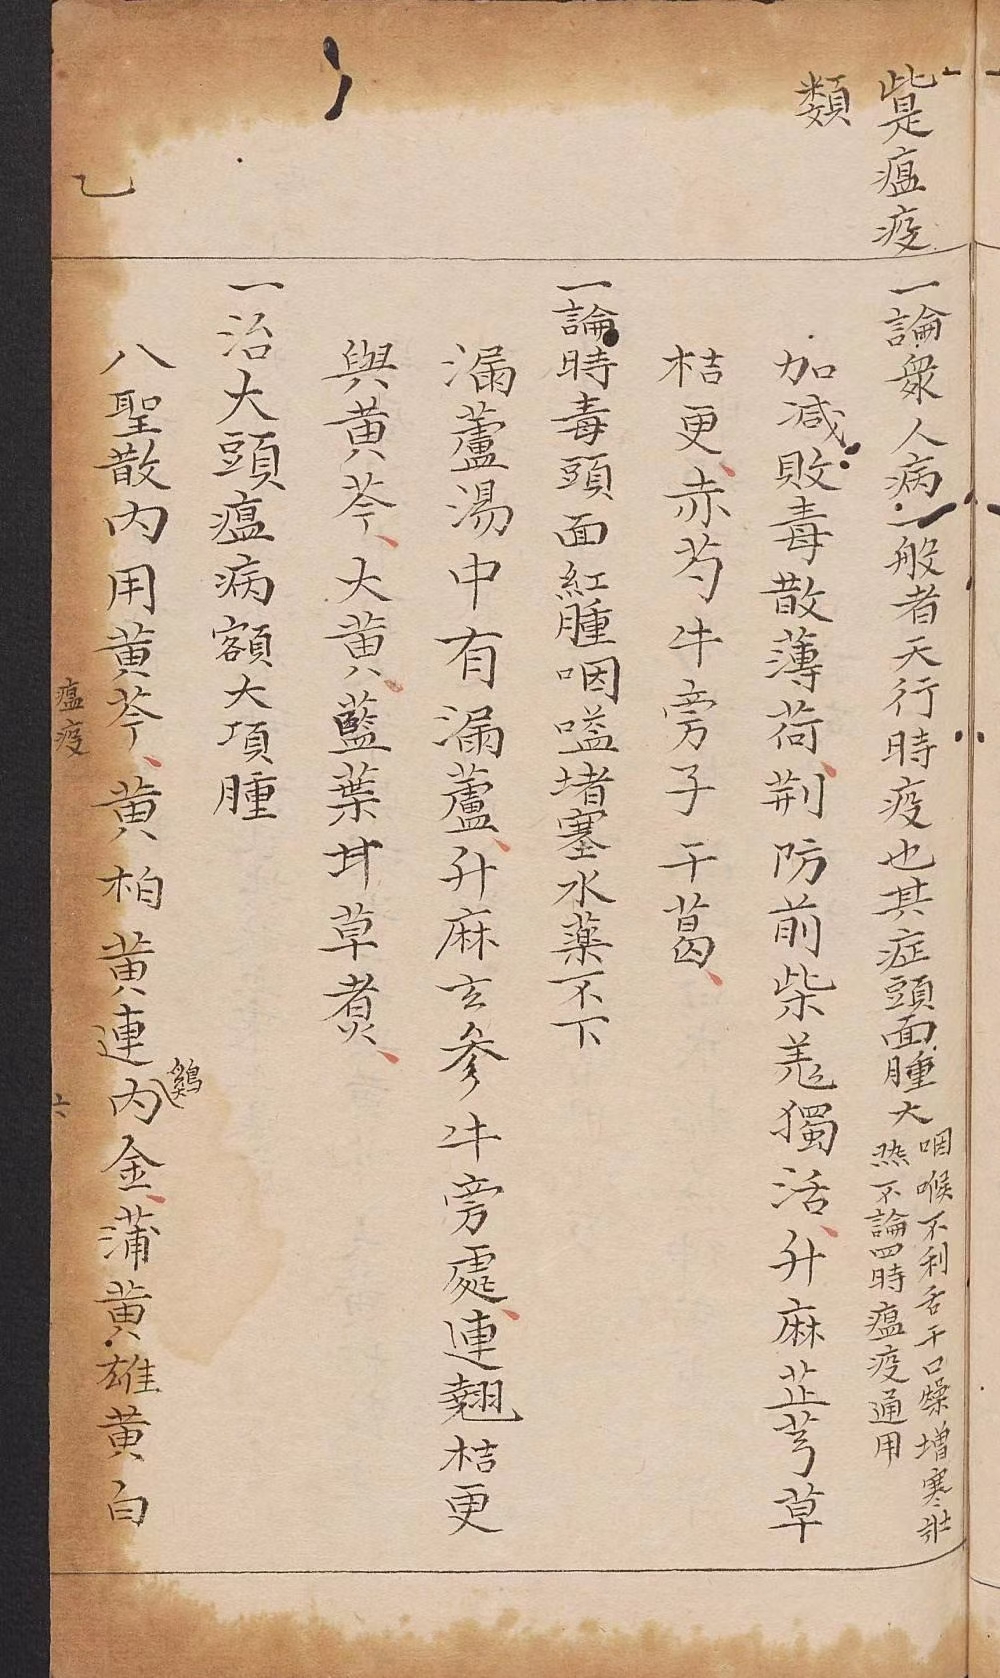 此是瘟疫
類
一論衆人病一般者天行時疫也其症頭面腫大
咽喉不利舌干口燥增寒壯
热不論四時瘟疫通用
加減敗毒散薄荷荆防前柴羗獨活升麻芷芎草
桔更赤芍牛旁子干葛
一論時毒頭面紅腫咽嗌堵塞水藥不下
漏蘆湯中有漏蘆升麻玄參牛旁處連翹桔更
與黄芩大黄藍葉甘草煮
一治大頭瘟病額大項腫
八聖散内用黄芩黄柏黄連内金蒲黄雄黄白
鷄
瘟疫
六